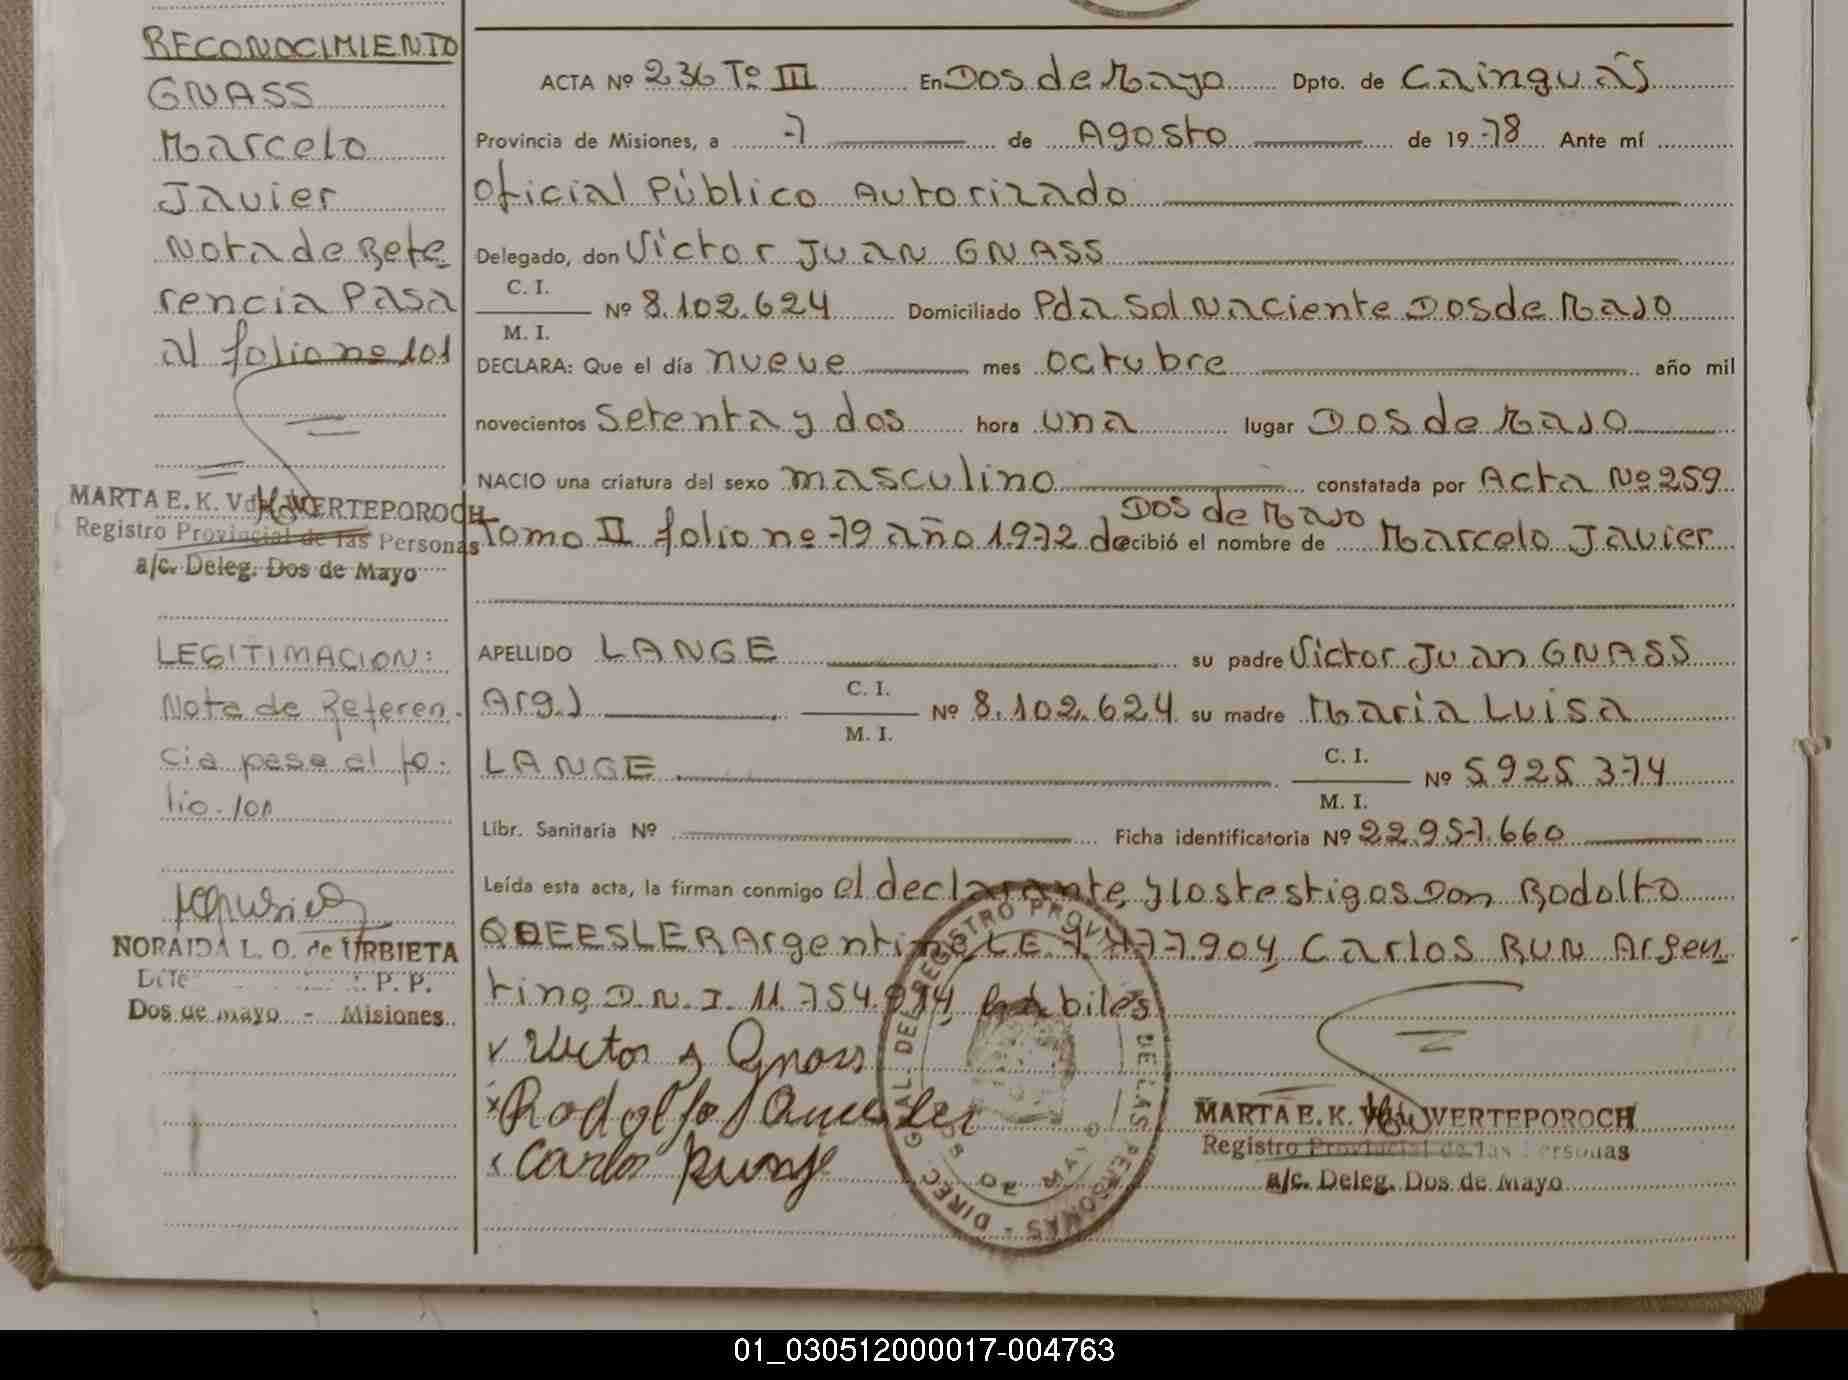 RECONOCIMIENTO
GNASS
Marcelo
Javier
Nota de Refe
rencia Pasa
al folio nº 101
MARTA E. K. Vda. WERTEPOROCH
Registro Provincial de las Personas
a/c. Deleg. Dos de Mayo
LEGITIMACION:
Nota de Referen.
cia pasa al fo.
lio. 101
NORAIDA L. O. de URBIETA
P. P.
Dos de mayo - Misiones
ACTA Nº 236 Tº III En Dos de Mayo Dpto. de Cainguás
Provincia de Misiones, a 7 de Agosto de 1978 Ante mí
Oficial Público Autorizado
Delegado, don Víctor Juan GNASS
C. I.
M. I.
Nº 8.102.624 Domiciliado Pda Sol Naciente Dos de Mayo
DECLARA: Que el día nueve mes octubre año mil
novecientos setenta y dos hora una lugar Dos de Mayo
NACIO una criatura del sexo masculino constatada por Acta Nº 259
Dos de Mayo
Tomo II folio nº 79 año 1972 de recibió el nombre de Marcelo Javier
APELLIDO LANGE su padre Víctor Juan GNASS
Arg.)
C. I.
M. I.
Nº 8.102.624 su madre María Luisa
LANGE
C. I.
M. I.
Nº 5925374
Libr. Sanitaria Nº Ficha identificatoria Nº 22.957.660
Leída esta acta, la firman conmigo el declarante, y los testigos Don Rodolfo
Argentino, L.E. 7.477.904, Carlos RUN Argen
tino, D.N.I. 11.754.974, hábiles
Victor J Gnass
Rodolfo
Carlos Runge
DIREC. GRAL. DEL REGISTRO PROVINCIAL DE LAS PERSONAS -
DOS DE MAYO
MARTA E. K. Vda. WERTEPOROCH
Registro Provincial de las Personas
a/c. Deleg. Dos de Mayo
01_030512000017-004763